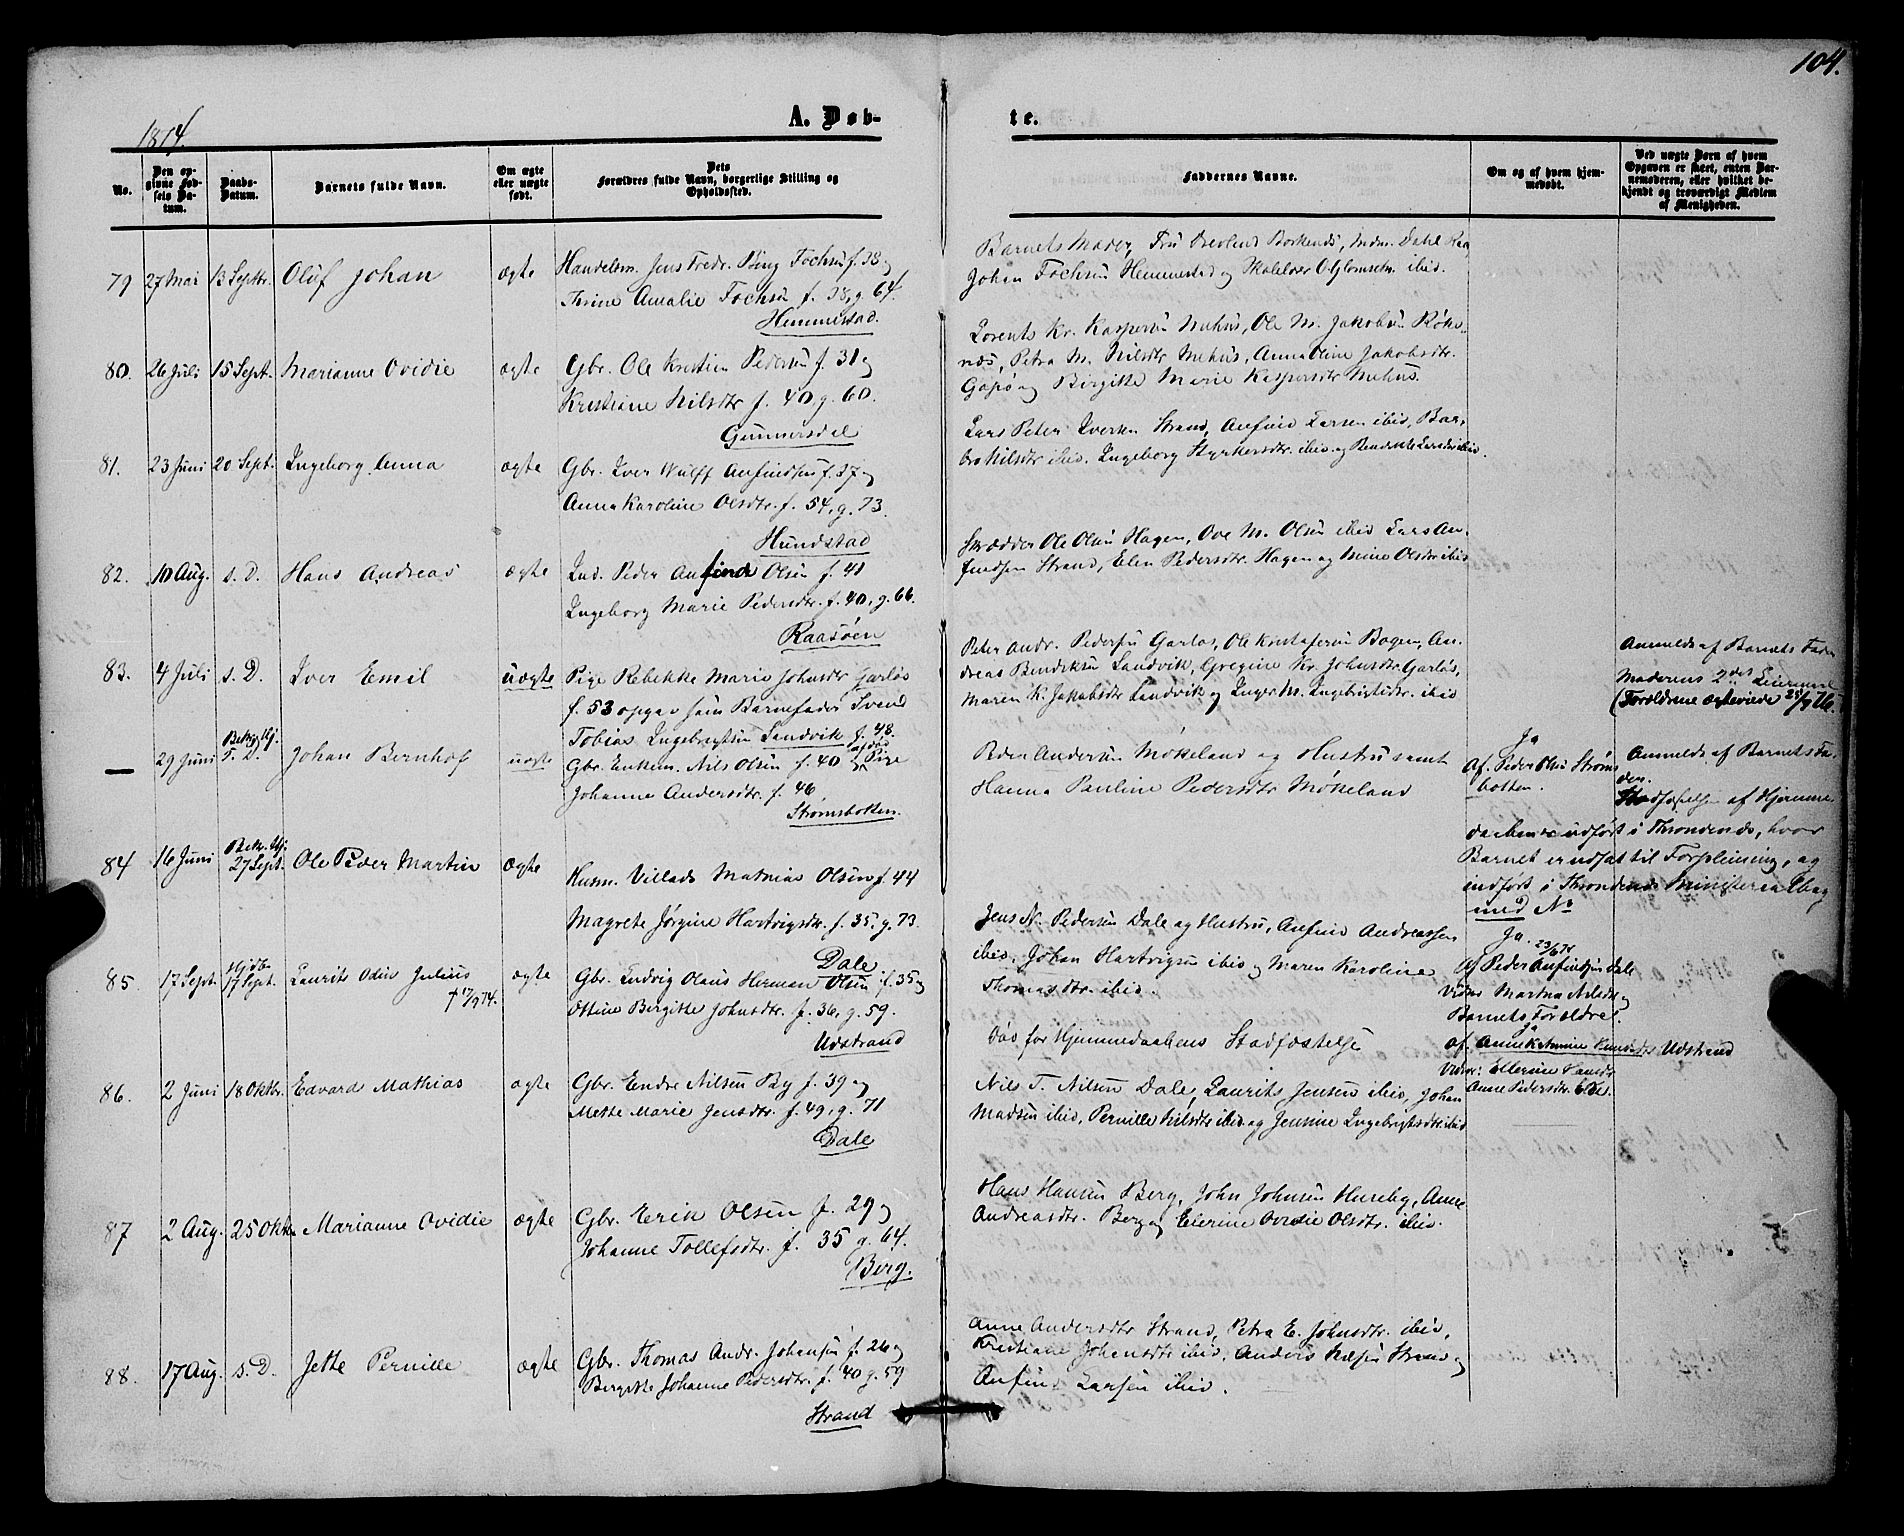 104.
1874.
A. Døb-
te.
No.
Den op-
givne Fød-
sels Da-
tum.
Daabs-
Datum.
Barnets fulde Navn.
Om ægte
eller uægte
født.
Dets
Forældres fulde Navn, borgerlige Stilling og
Opholdssted.
Faddernes Navne.
Om og af hvem hjem-
medøbt.
Ved uægte Børn af hvem
Opgaven er skeet, enten Bar-
nemoderen, eller hvilket be-
kjendt og troværdigt Medlem
af Menigheden.
79 27 Mai 13 Septbr. Oluf Johan ægte Handelsm. Jens Fredr. Bing Fochsen f. 28 og
Trine Amalie Fochsen f. 38, g. 64.
Hemmestad.
Barnets Moder, Fru Borkenæs, Mdm. Dahl
Johan Fochsen Hemmestad og ibid.
80. 26 Juli 15 Sept. Marianne Ovidie ægte Gbr. Ole Kristian Pedersen f. 31 og
Kristiane Nilsdtr f. 40, g. 60.
Gunnersdal
Lorents Kr. Kaspersen Mehus, Ole M. Jakobsen Røke-
næs, Petra M. Nilsdtr Mehus, Anna Oline Jakobsdtr.
Gapø og Birgitte Marie Kaspersdtr Mehus.
81. 23 Juni 20 Sept. Ingeborg Anna ægte Gbr. Iver Wulff Anfindsen f. 37 og
Anna Karoline Olsdtr. f. 54, g. 73.
Hundstad
Lars Peter Iversen Strand, Anfind Larsen ibid, Bar-
bro Nilsdtr ibid, Ingeborg Styrkersdtr. ibid. og Larsdtr ibid.
82. 10 Aug. s. D. Hans Andreas ægte Ind. Peder Anfind Olsen f. 41
Ingeborg Marie Pedersdtr. f. 40, g. 66.
Raasøen
Skrædder Ole Olsen Hagen, Ove M. Olsen ibid Lars An-
findsen Strand, Elen Pedersdtr. Hagen og Mine Olsdtr ibid
83. 4 Juli s. D. Iver Emil uægte Pige Rebekke Marie Johnsdtr Garlos
f. 53 opgav som Barnefader Svend
Tobias Ingebrigtsen Sandvik f. 48.
Peter Andr. Pedersen Garlos, Ole Kristofersen Bogen, An-
dreas Bendiksen Sandvik, Gregine Kr. Johnsdtr Garlos,
Maren K. Jakobsdtr Sandvik og Inger M. Ingebrigtsdtr. ibid
Anmeldt af Barnets Fader
Moderens 2det Leiermaal
(Forældrene ægteviede 76.
— 29 Juni Johan Bernhof uægte Gbr. Enkem. Nils Olsen f. 40 Pige
Johanne Andersdtr. f. 46
Strømsbotten.
Peder Andersen Møkeland og Hustru samt
Hanna Pauline Pedersdtr Møkeland
Ja
Af Peder Olsen Strøms-
botten.
Anmeldt af Barnets Fa-
der.
Stadfæstelsen af Hjemme-
daaben er udført i Throndenæs, hvor
Barnet er udsat til Forpleining, og
indført i Throndenæs Ministerialbog
med No
84 16 Juni 27 Sept. Ole Peder Martin Ægte Husm. Villads Mathias Olsen f. 44
Magrete Jørgine Hartvigsdtr. f. 35, g. 73.
Dale
Jens N. Pedersen Dale og Hustru, Anfind Andreassen
ibid, Johan Hartvigsen ibid og Maren Karoline
Thomasdtr. ibid.
Ja.
af Peder Anfindsen Dale
Vidner Martha Nilsdtr og
Barnets Forældre.
85. 17 Sept. Hjdbt. 17 Sept. Laurits Odin Julius
† 17/9 74. ægte Gbr. Ludvig Olaus Herman Olsen f. 35 og
Ottine Birgitte Johnsdtr. f. 36, g. 59.
Udstrand
Død før Hjemmedaabens Stadfæstelse
Ja
af Anne Katrine Udstrand
Vidner: Ellerine Hansdtr
Anne Pedersdtr. ibid.
86. 2 Juni 18 Oktbr. Edvard Mathias ægte Gbr. Endre Nilsen By f. 39 og
Mette Marie Jensdtr. f. 49, g. 71
Dale
Nils T. Nilsen Dale, Laurits Jensen ibid, Johan
Madsen ibid, Pernille Nilsdtr ibid og Jensine Ingebrigtsdtr ibid
87 2 Aug. 25 Oktr. Marianne Ovidie ægte Gbr. Erik Olsen f. 29 og
Johanne Tollefsdtr. f. 35 g. 64.
Berg.
Hans Hansen Berg, John Johnsen Huseby, Anne
Andreasdtr. Berg og Elerine Ovidie Olsdtr. ibid.
88. 17 Aug. s. D. Jette Pernille ægte Gbr. Thomas Andr. Johansen f. 26 og
Bergitte Johanne Pedersdtr. f. 40 g. 59
Strand
Anne Andersdtr Strand, Petra E. Johnsdtr. ibid,
Kristiane Johansdtr ibid, Anders Strand og
Anfind Larsen ibid.